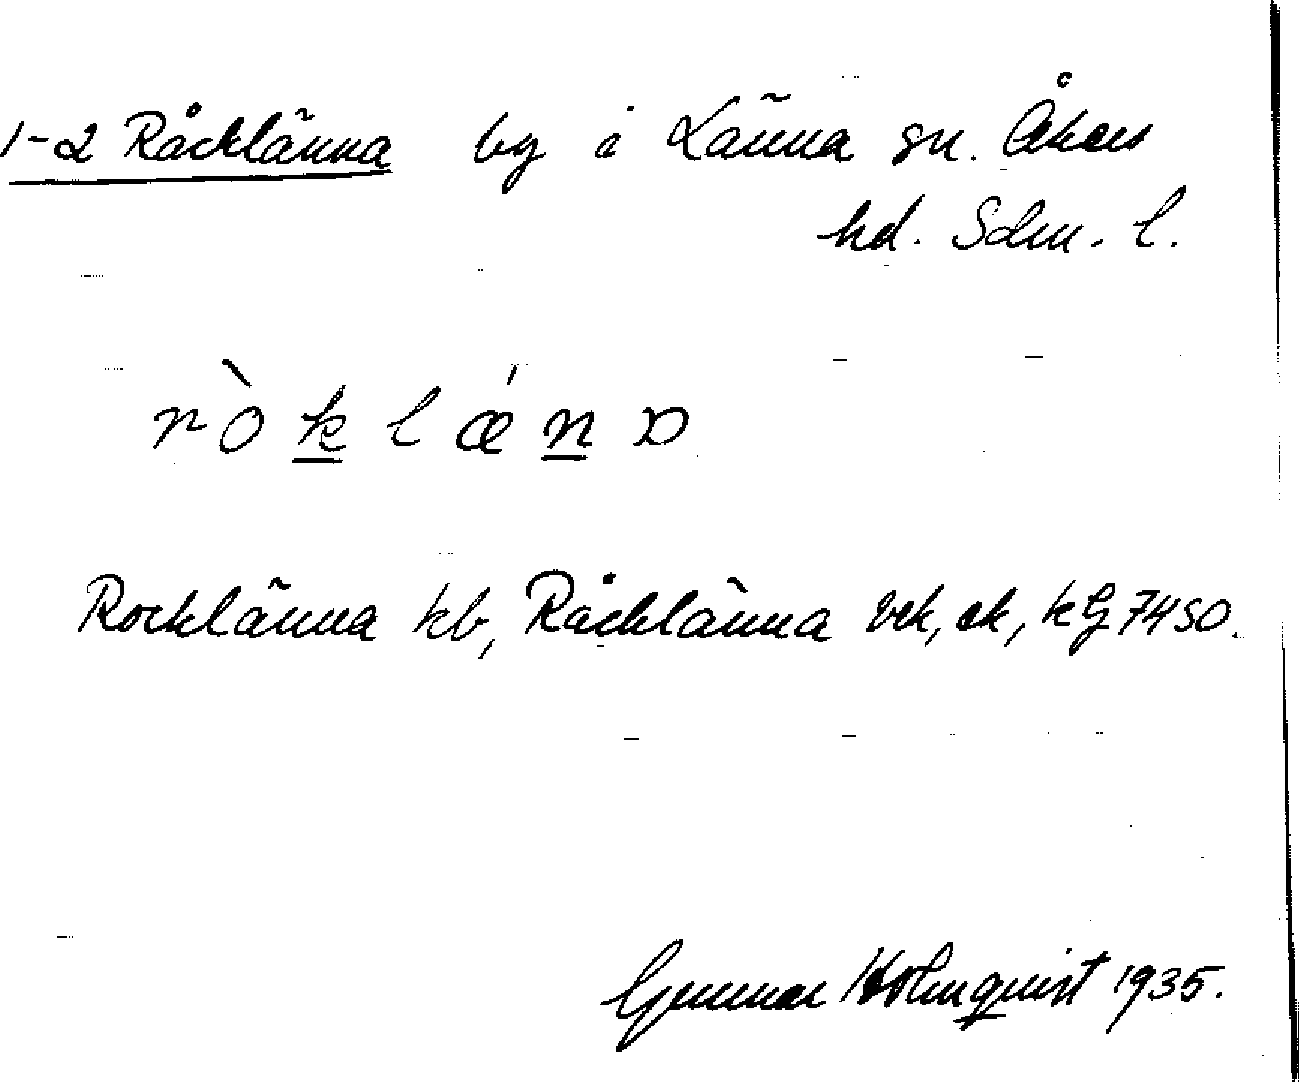 1-2 Råcklänna by i Länna sn. Åkers
hd. Sdm. l.
ròklǽnα
Rocklänna kb, Råcklänna vk, ek, kG 7450.
Gunnar Holmquist 1935.